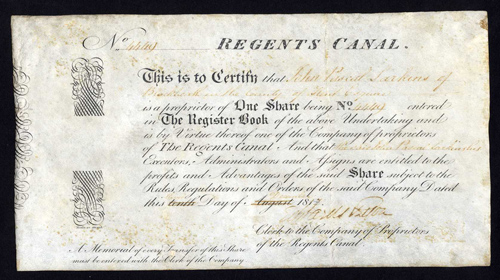 No 4444 REGENTS CANAL.
This is to Certify that John Pascal Larkins of
in the County of Kent Esquire
is a proprietor of One Share being No 4444 entered
in The Register Book of the above Undertaking and
is by Virtue thereof one of the Company of proprietors
of The Regents Canal. And that
Executors, Administrators and Assigns are entitled to the
profits and Advantages of the said Share subject to the
Rules, Regulations and Orders of the said Company Dated
this tenth Day of August 181
Clerk to the Company of Proprietors
of the Regents Canal
A Memorial of every Transfer of this Share
must be entered with the Clerk of the Company